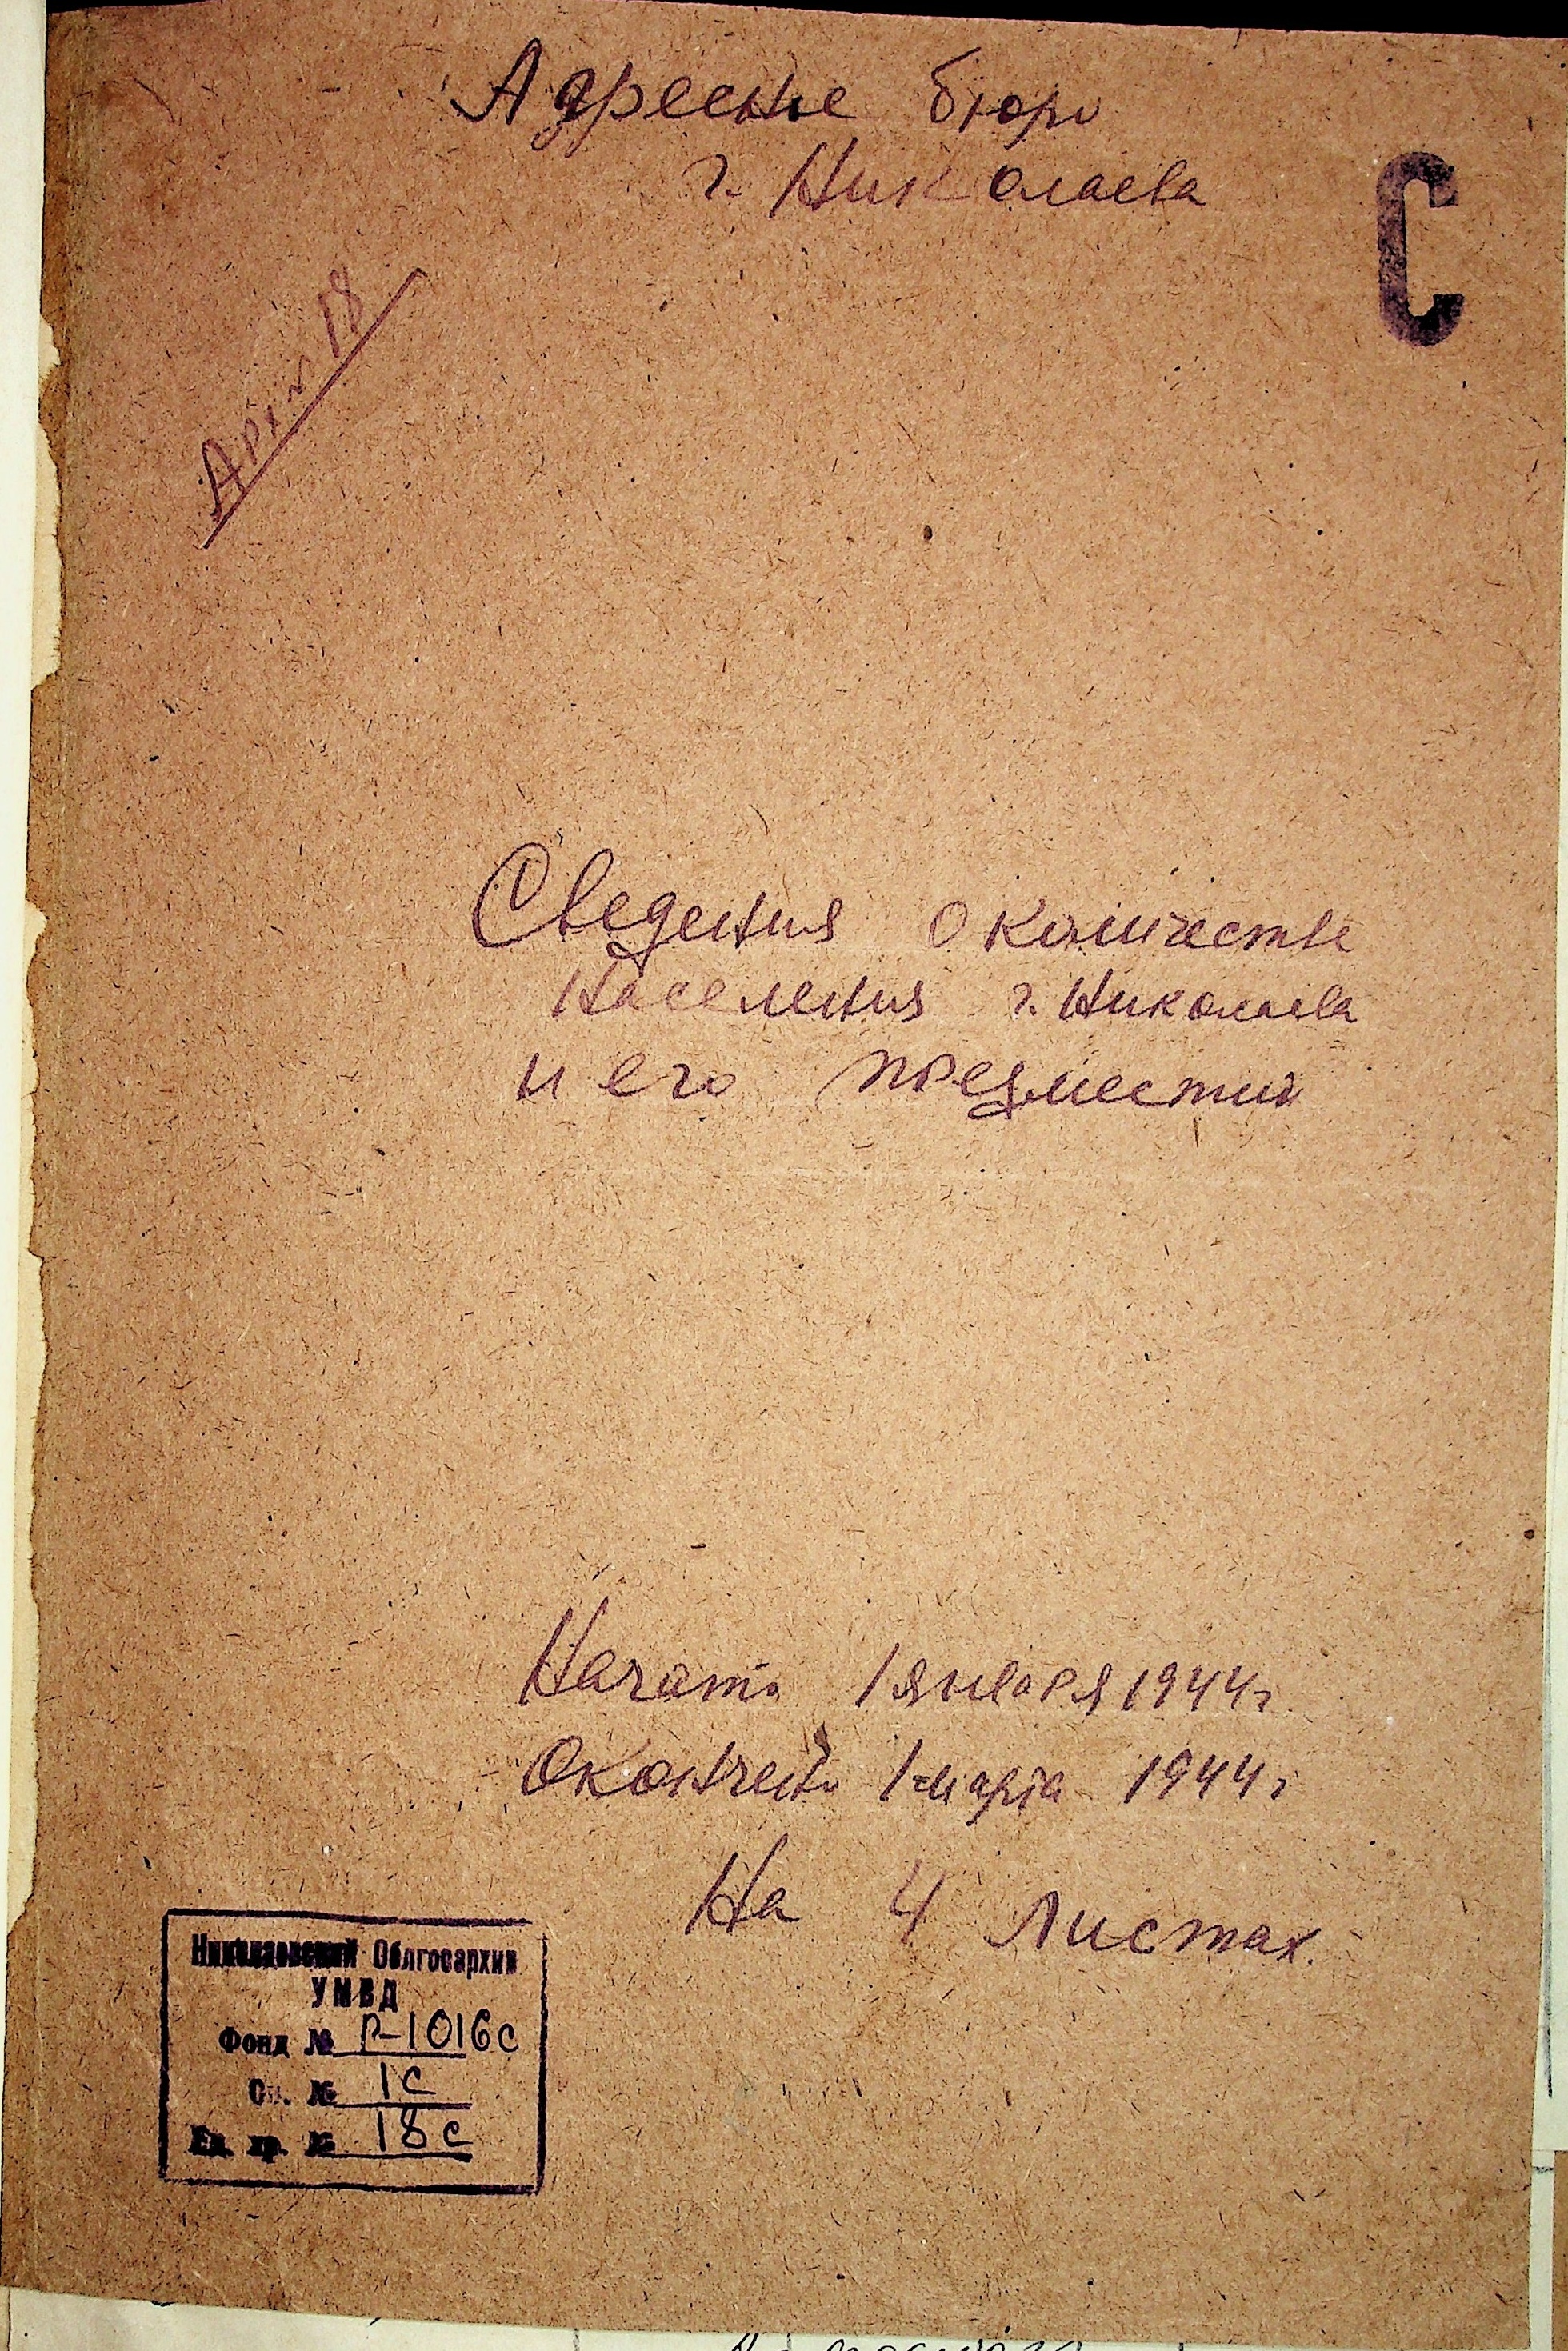 Адресное бюро
г. Николаева
С
Арх. № 18
Сведения о количестве
населения г. Николаева
и его предместий
Начато 1 января 1944 г.
Окончено 1 марта 1944 г.
На 4 листах.
Николаевский Облгосархив
УМВД
Фонд № Р-1016с
Оп. № 1с
Ед. хр. № 18с